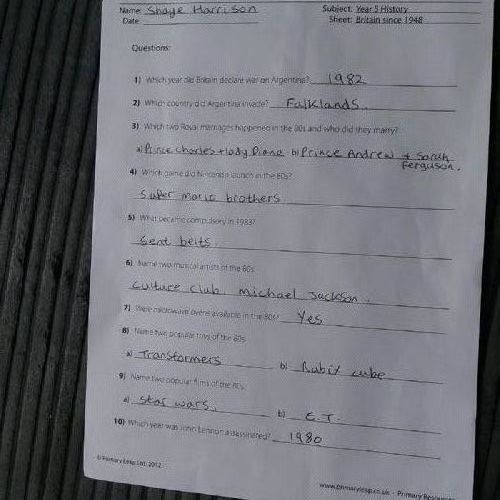 Name: Shaye Harrison Subject: Year 5 History
Date Sheet: Britain since 1948
Questions:
1) Which year did Britain declare war on Argentina? 1982
2) Which country did Argentina invade? Falklands.
3) Which two Royal marriages happened in the 80s and who did they marry?
a) Prince Charles + lady Diana b) Prince Andrew + Sarah
Ferguson.
4) Which game did Nintendo launch in the 80s?
Super mario brothers
5) What became compulsory in 1983?
Seat belts.
6) Name two musical artists of the 80s
Culture club michael Jackson.
7) Were microwave ovens available in the 80s? Yes
8) Name two popular toys of the 80s
a) Transformers b) Rubix cube
9) Name two popular films of the 80s
a) Star wars. b) E.T.
10) Which year was John Lennon assassinated? 1980
© Primary Leap Ltd. 2012
www.primaryleap.co.uk - Primary Resources